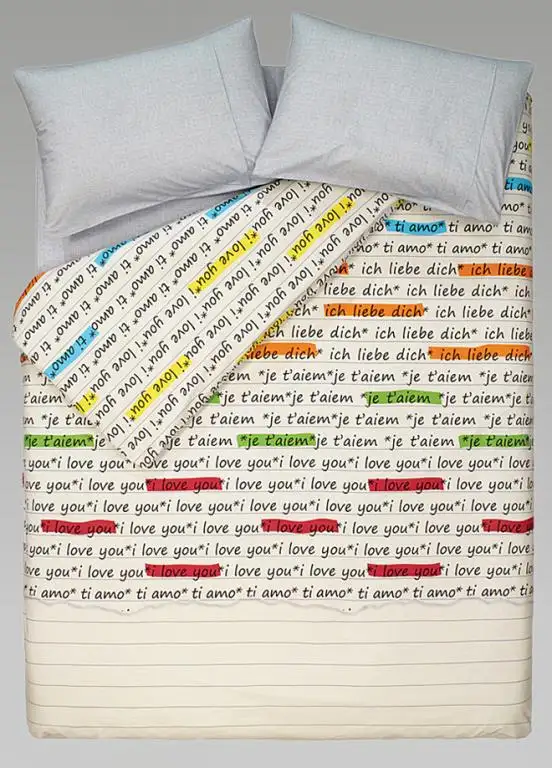 you
you*
* ti
ti amo
ti amo* ti
* ti amo* ti amo* ti amo
ti amo* ti amo* ti amo*
ich liebe dich* ich liebe
ich liebe dich* ich liebe
ich liebe dich* ich liebe
liebe dich* ich liebe dich* ich liebe
*je t'aiem *je t'aiem *je t'aiem
*je t'aiem *je t'aiem
*je t'aiem*je t'aiem*je t'aiem
*je t'aiem*je t'aiem *je t'aiem*je t'aiem *je t'aiem
you*i love you*i love you*i love you*i love you*i love
i love you*i love you*i love you*i love you*i love
love you*i love you*i love you*i love you*i love you*i love
you*i love you*i love you*i love you*i love you*i love
you*i love you*i love you*i love you*i love you*i love
you*i love you*i love you*i love you*i love you*i love
ti amo* ti amo* ti amo* ti amo* ti amo* ti amo* ti amo*
ti amo* ti amo* ti amo* ti amo*
ti amo* ti amo* ti amo* ti amo*
i love you*i love you*i love you*
i love you*i love you*i love you*